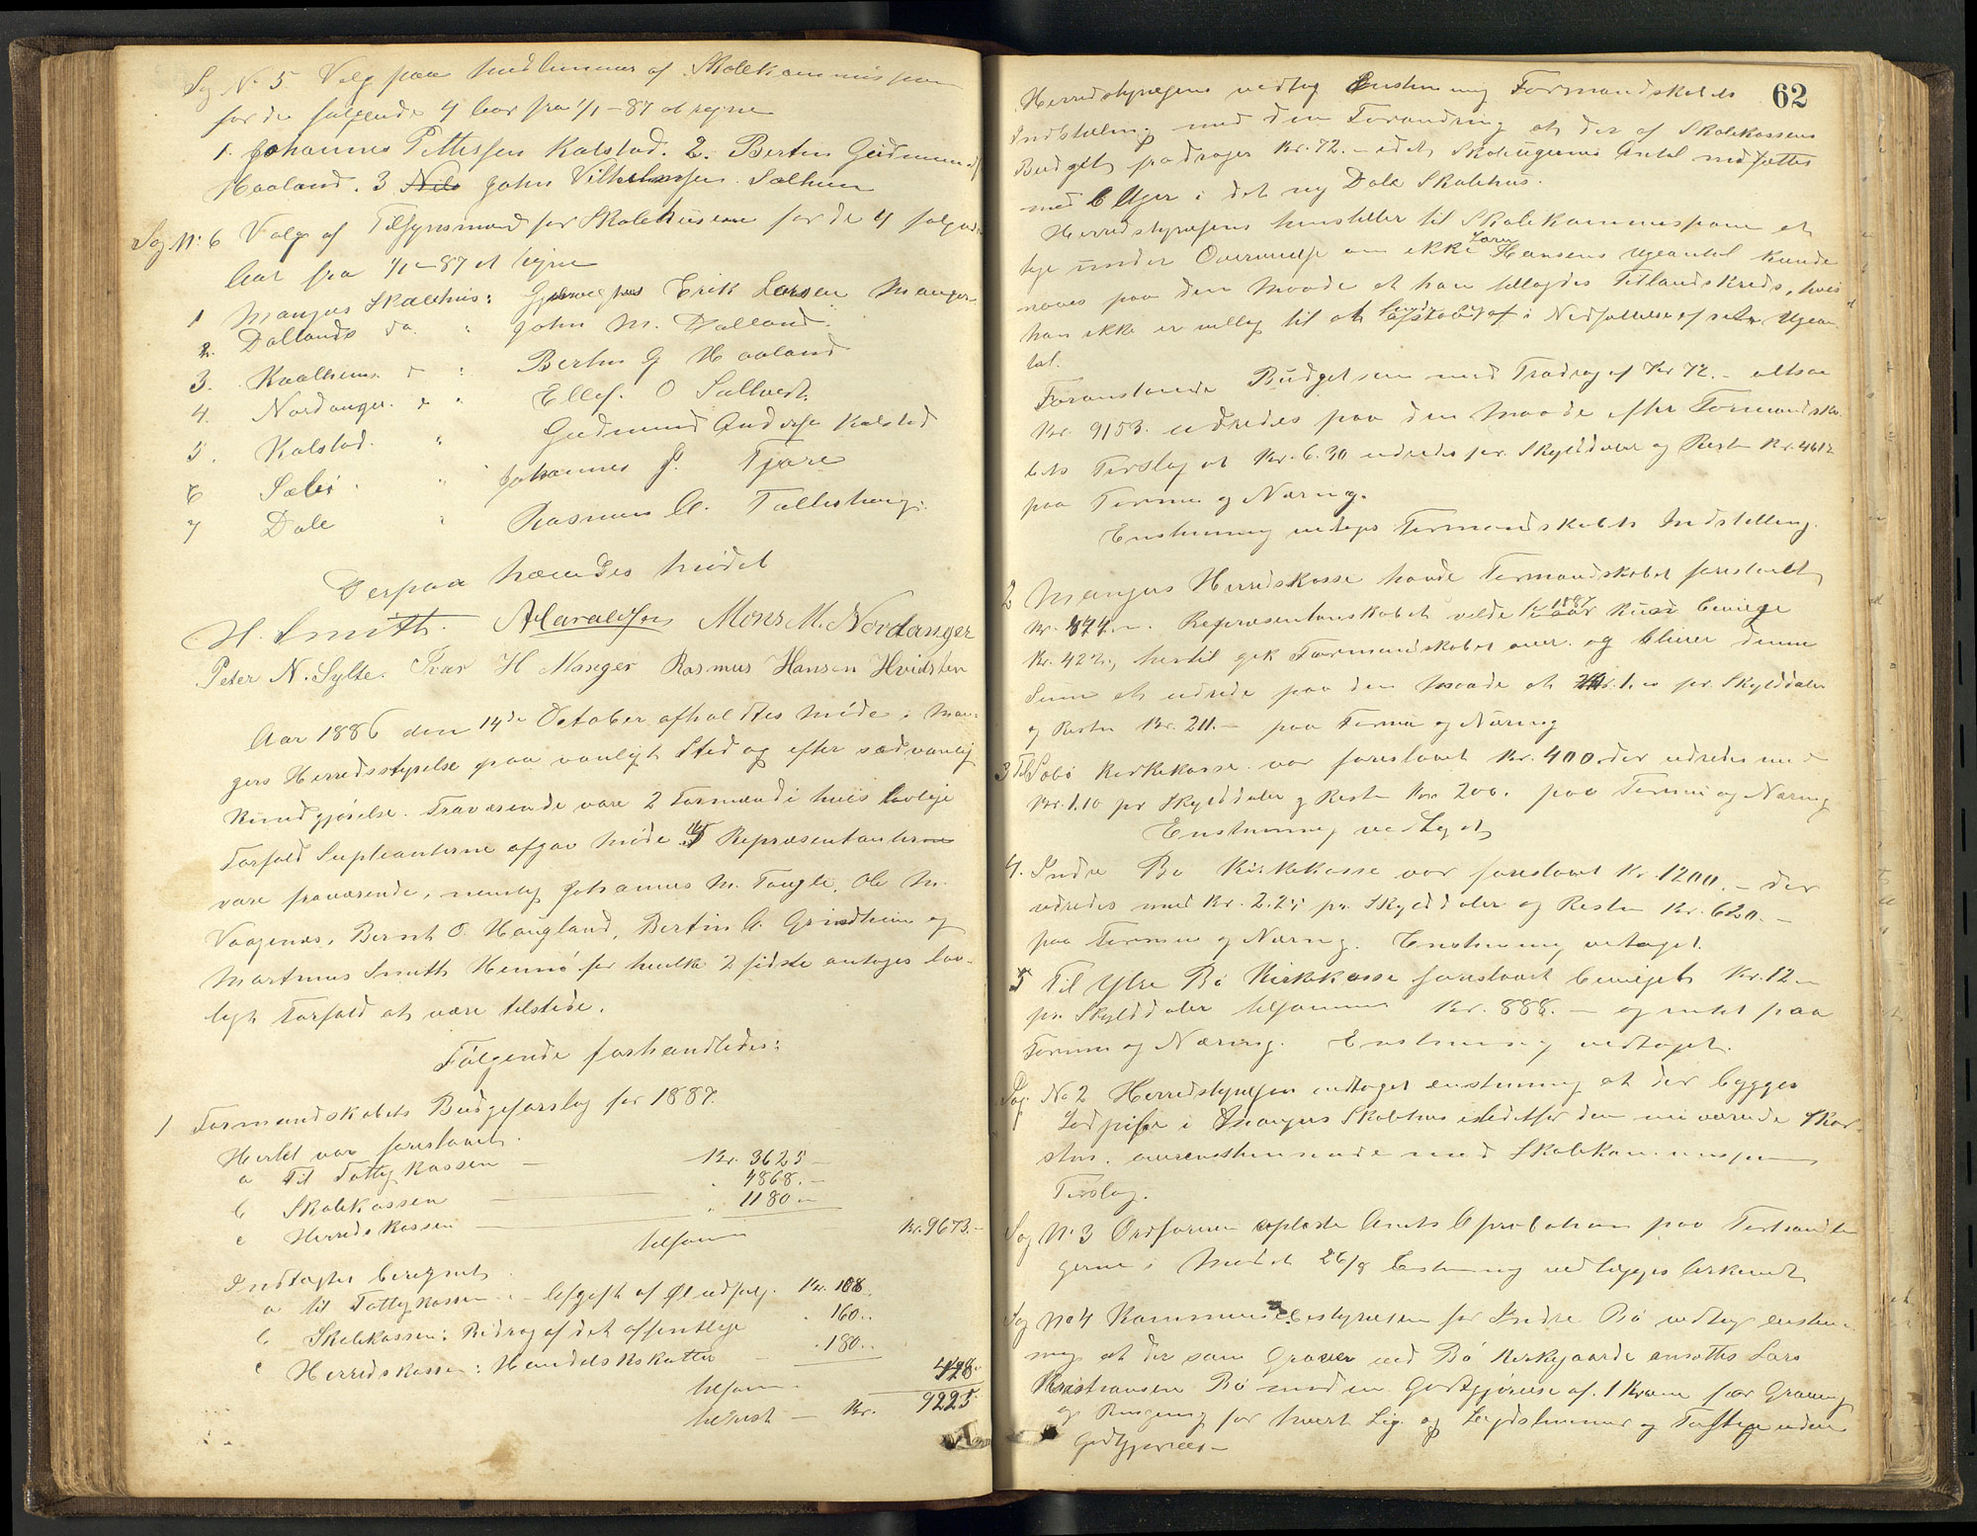 Sag No 5 Valg paa Medlemmer af Skolekommissionen
for de følgende 4 Aar fra 1/1-87 at regne
1. Johannes Pettersen Kalstad. 2. Bertin Gudmunds
Haaland. 3 Nils John Vilhelmsen Sælheim
Sag No 6 Valg af Tilsynsmænd for Skolehusene for de 4 følgende
Aar fra 1/1-87 at regne
1 Mangers Skolehus: Erik Larsen Manger
2. Dallands do " John M. Dalland.
3. Kvalheims d " Bertin G Haaland
4. Nordanger d " Ellef. O Soltvedt
5. Kalstad. " Gudmund Anders. Kalstad
6 Sæbø. " Johannes J. Fjøre
7 Dale " Rasmus A. Tallishaug.
Derpaa hævedes Mødet
H. Smith. A Haraldsen Mons M. Nordanger
Peter N. Sylte. Ivar H Manger Rasmus Hansen Hvidsten
Aar 1886 den 14de October afholdtes Møde i Man-
gers Herredsstyrelse paa vanligt Sted og efter sædvanlig
Kundgjørelse. Fraværende vare 2 Formænd i hvis lovlige
Forfald Suplianterne afgav Møde. 5 Repræsentanterne
vare fraværende, nemlig Johannes M. Tougle, Ole M.
Vaagenæs, Bernt O. Haugland, Bertin A. Grindheim og
Martinus Smith Hennø for hvilke 2 sidste antoges lov-
ligt Forfald at være tilstede.
Følgende forhandledes:
1 Formandskabets Budgeforslag for 1887.
Hertil var foreslaaet.
a Til Fattigkassen - Kr. 3625 -
b Skolekassen " 4868. -
c Herredskassen " 1180 -
tilsam Kr. 9673. -
Indtægter beregnet
a til Fattigkassen: Afgift af Øludsalg. Kr. 108.
b Skolekassen: Bidrag af det offentlige . 160..
c Herredskassen: Handelsskatter . 180..
tilsam. 448
tilrest - Kr. 9225
62
Herredstyrelsen vedtog Enstemmig Formandskabets
Indstilling med den Forandring at der af Skolekassens
Budget fradrages Kr. 72. - idet Skoleugernes Antal nedsættes
med 6 Uger i det ny Dale Skolehus.
Herredstyrelsen henstiller til Skolekommissionen at
tage under Overveielse om ikke Lærer Hansens Ugeantal kunde
naaes paa den Maade at han tillagdes Tetlandskreds, hvis
han ikke er villig til at i Nedsættelse af sit Ugean
tal.
Foranstaaende Budget som med Fradrag af Kr 72. - altsaa
Kr. 9153. udredes paa den Maade efter Formandska-
bets Forslag at Kr. 6.30 udredes pr. Skylddaler og Resten Kr. 4612
paa Formue og Næring.
Enstemmig vedtages Formandskabets Indstilling.
2 Mangers Herredskasse havde Formandskabet foreslaaet
Kr. 474. -. Repræsentantskabet vilde for 1887 kun bevilge
Kr. 422, hertil gik Formandskabet over. og bliver denne
Sum at udrede paa den Maade at Kr. 1. pr. Skylddaler
og Resten Kr. 211. - paa Formue og Næring
3 Til Sæbø Kirkekasse var foreslaaet Kr. 400 der udredes med
Kr. 1.10 pr Skylddaler og Resten Kr. 200. paa Formue og Næring
Enstemmig vedtaget
4. Indre Bø Kirkekasse var foreslaaet Kr. 1200. - der
udredes med Kr. 2.25 pr. Skylddaler og Resten Kr. 620. -
paa Formue og Næring. Enstemmig vedtaget.
5 Til Ytre Bø Kirkekasse foreslaaet bevilget Kr. 12 -
pr. Skylddaler tilsammen Kr. 888. - og intet paa
Formue og Næring. Enstemmig vedtaget.
Sag No 2 Herredstyrelsen vedtaget enstemmig at der bygges
Jordpibe i Mangers Skolehus istedetfor den nuværende Skor-
sten, overensstemmende med Skolekommissionens
Forslag.
Sag No 3 Ordføreren oplæste Amtets Aprobation paa Forhandlin
gerne i Mødet 26/8 Enstemmig vedtages
Sag No 4 Kommunebestyrelsen for Indre Bø vedtog enstem-
mig at der som Graver ved Bø Kirkegaarde ansættes Lars
Kristiansen Bø mod en Godtgjørelse af 1 Krone for Gravning
og Ringning for hvert Lig og uden
Godtgjørelse -